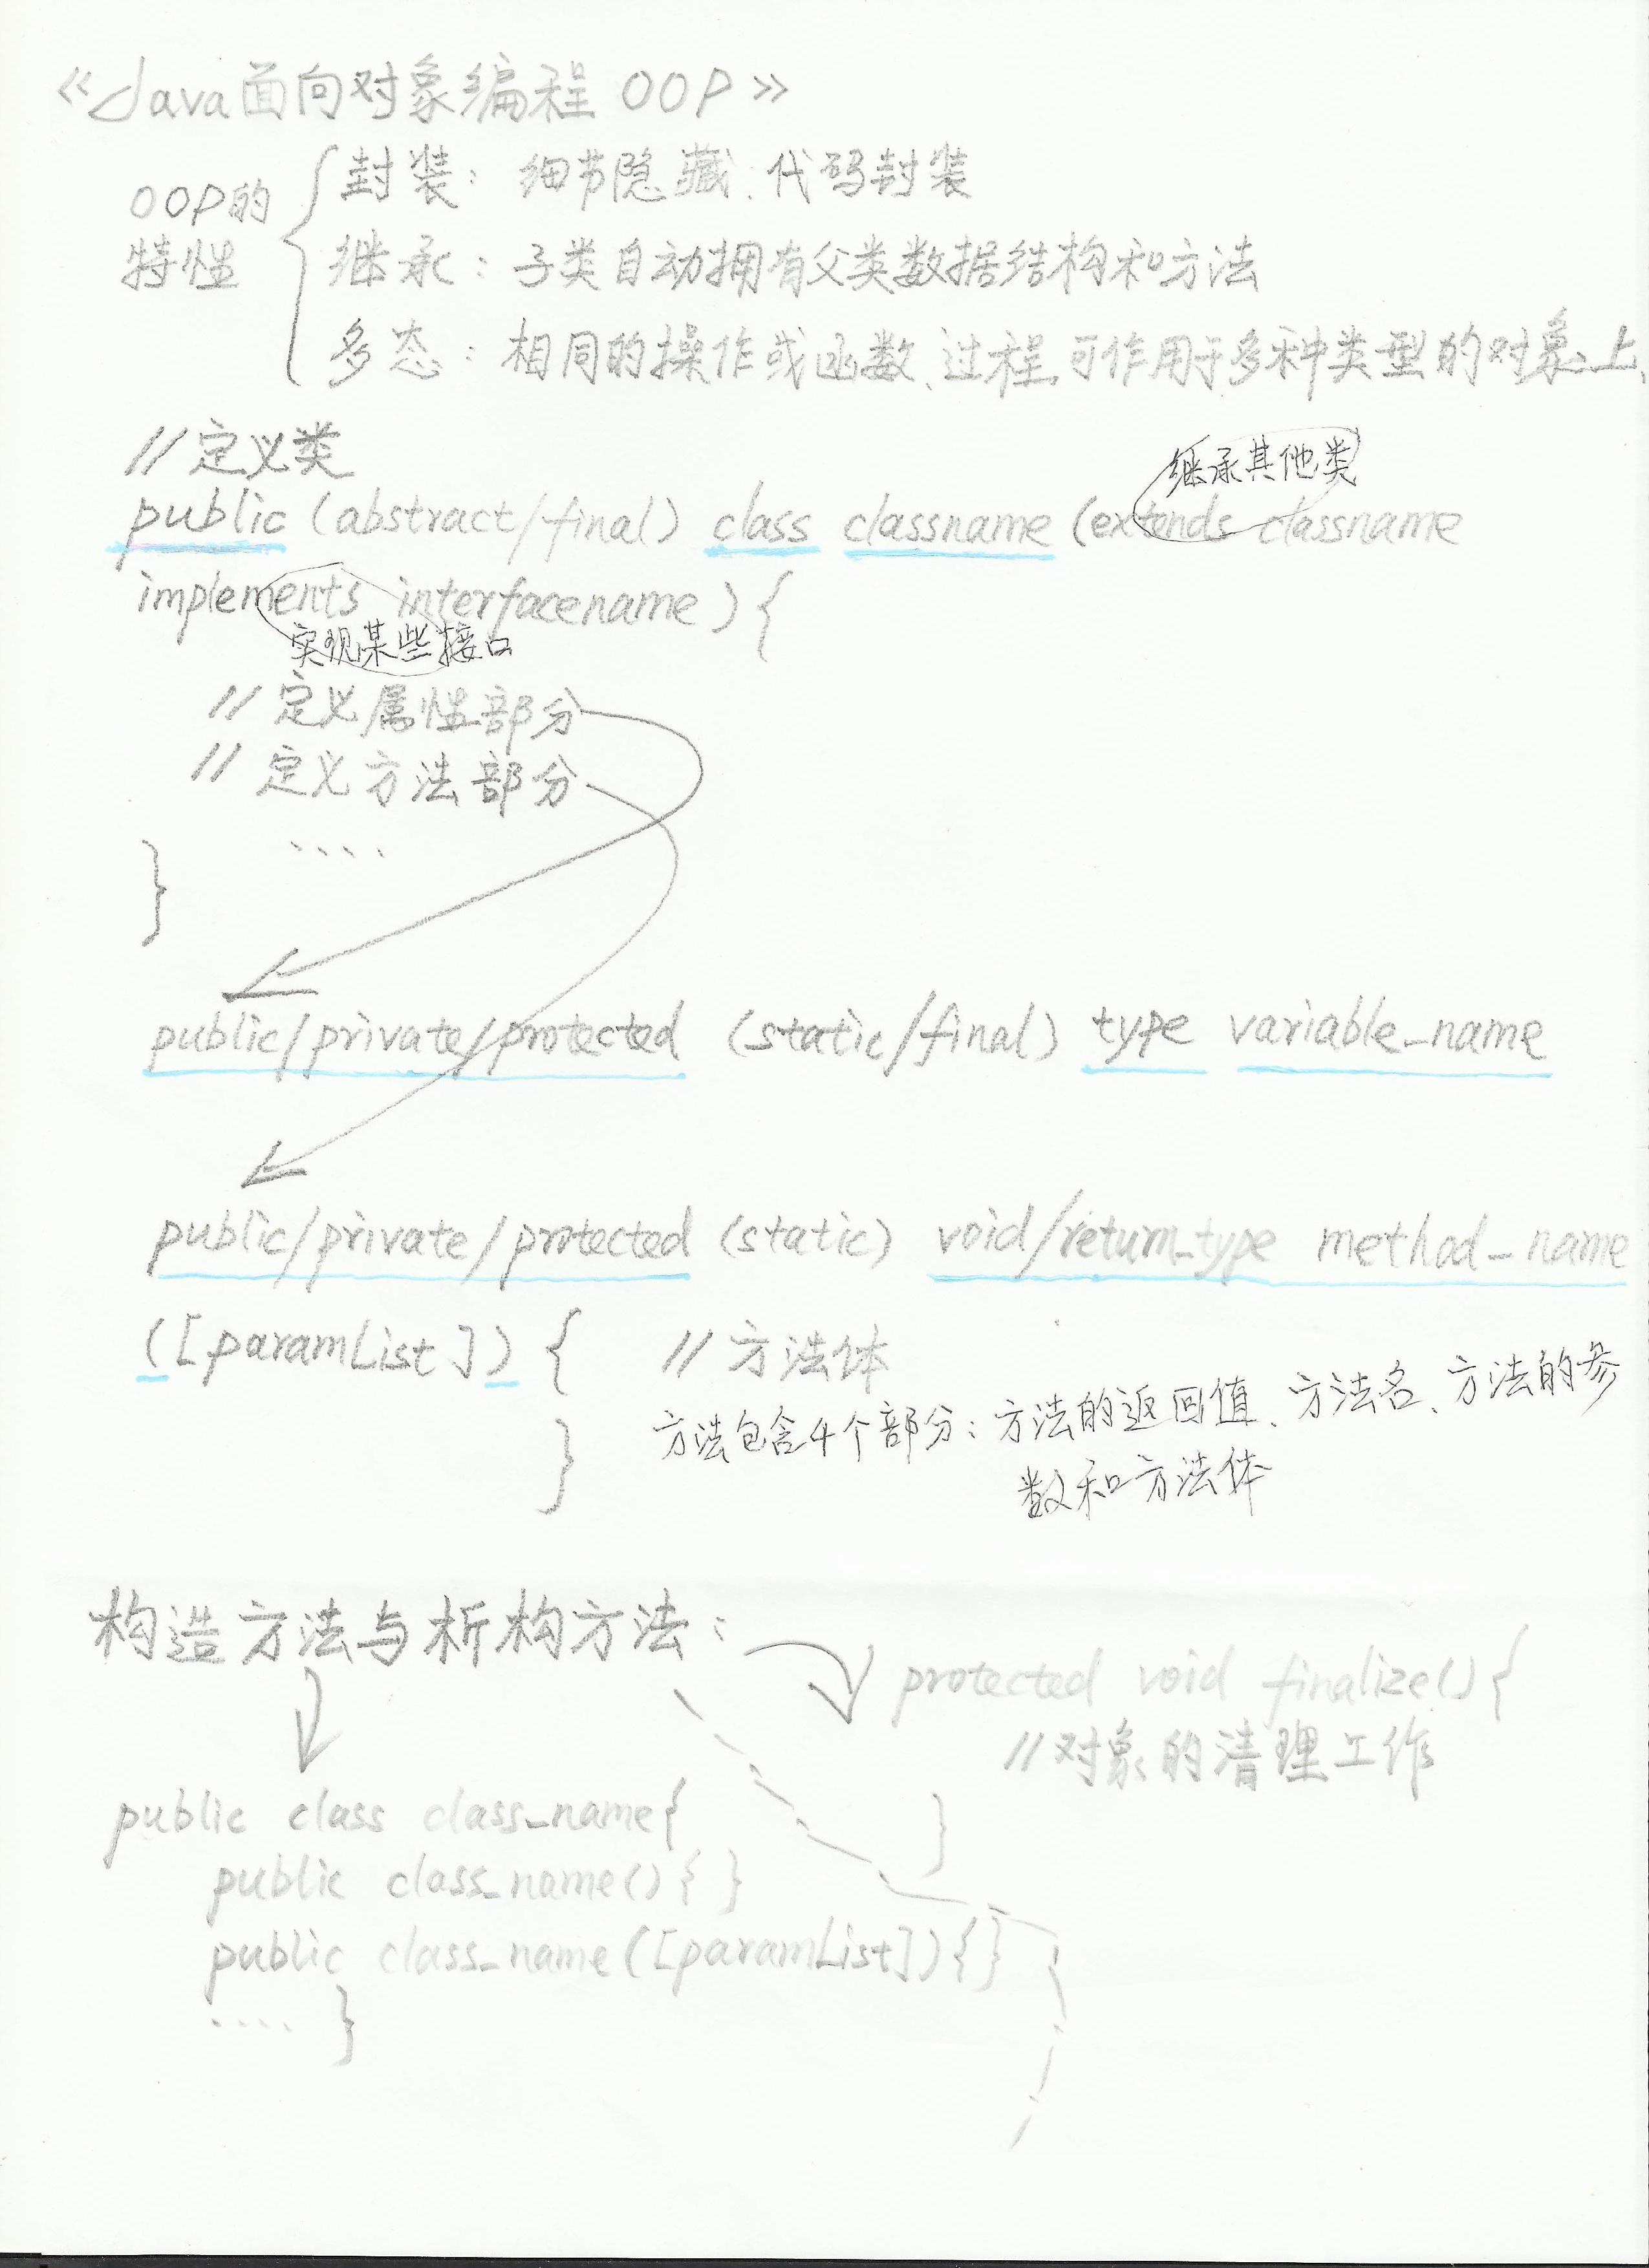 《Java面向对象编程 OOP》
OOP的特性
封装：细节隐藏、代码封装
继承：子类自动拥有父类数据结构和方法
多态：相同的操作或函数、过程可作用于多种类型的对象上、
//定义类
继承其他类
public (abstract/final) class classname (extends classname
implements interfacename) {
实现某些接口
//定义属性部分
//定义方法部分
....
}
public/private/protected (static/final) type variable_name
public/private/protected (static) void/return_type method_name
([paramList]) { //方法体
方法包含4个部分：方法的返回值、方法名、方法的参
数和方法体
}
构造方法与析构方法：
protected void finalize(){
//对象的清理工作
}
public class class_name{
public class_name(){ }
public class_name([paramList]){ }
.... }